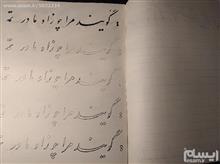 گویند مرا چو زاد مادر
گویند مرا چو زاد مادر
گویند مرا چو زاد مادر
گویند مرا چو زاد مادر
گویند مرا چو زاد مادر
ایسام